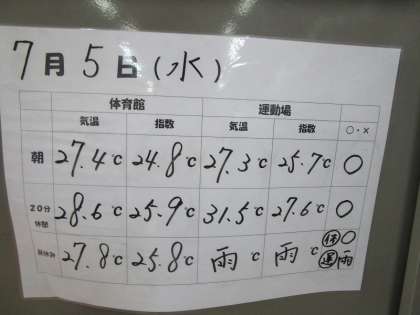 7月5日(水)
体育館 運動場
気温 指数 気温 指数 ○・×
朝 27.4℃ 24.8℃ 27.3℃ 25.7℃ ○
20分休憩 28.6℃ 25.9℃ 31.5℃ 27.6℃ ○
昼休み 27.8℃ 25.8℃ 雨℃ 雨℃ 体○
運雨